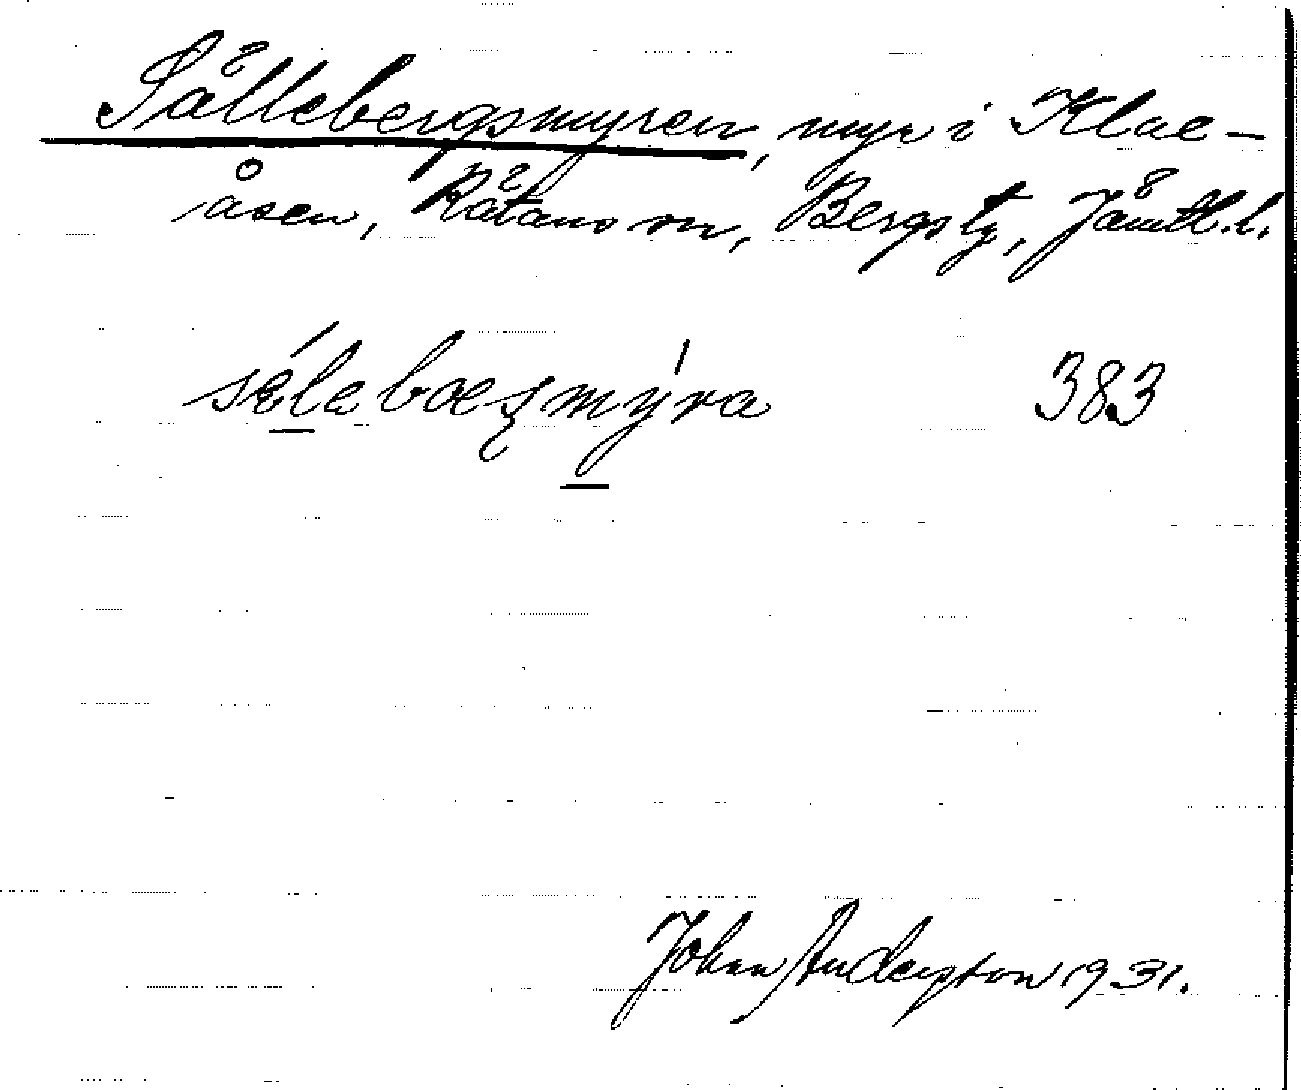 Sällebergsmyren, myr i Klac-
åsen, Rätans sn, Bergs tg, Jämtl. l.
sæ̀lebærʂmýra 383
John Andersson 1931.